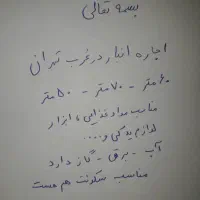 بسمه تعالی
اجاره انبار در غرب تهران
۶۰ متر - ۷۰ متر - ۵۰ متر
مناسب مواد غذایی، ابزار
لوازم یدکی و ...
آب - برق - گاز دارد
مناسب سکونت هم هست